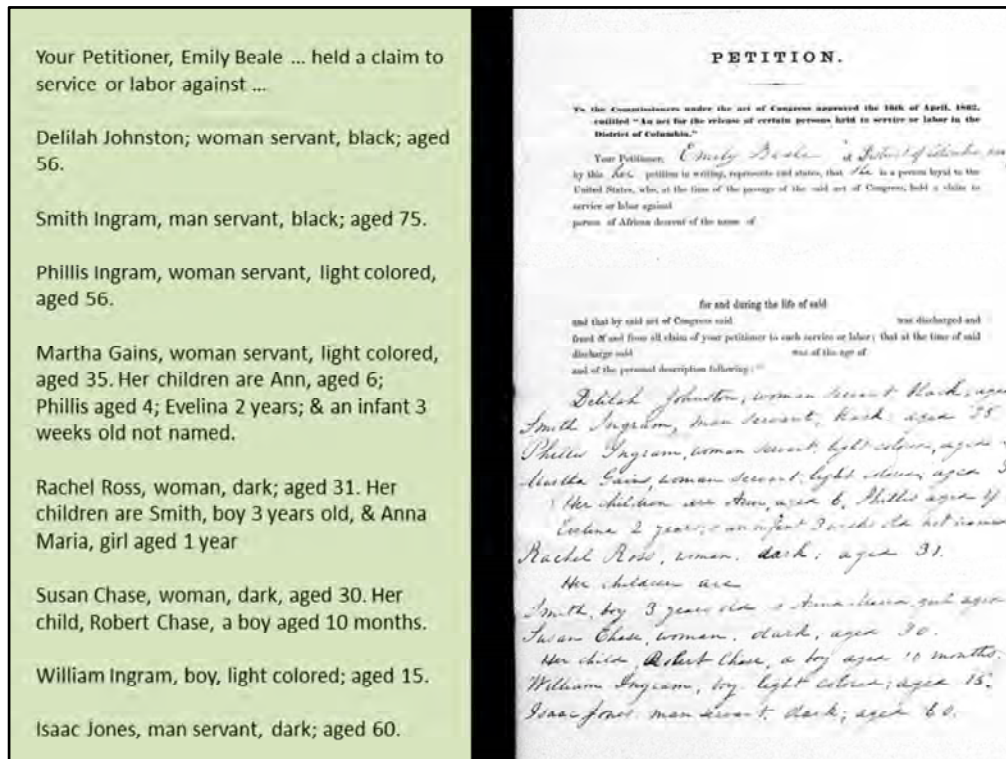 Your Petitioner, Emily Beale ... held a claim to
service or labor against ...
Delilah Johnston; woman servant, black; aged
56.
Smith Ingram, man servant, black; aged 75.
Phillis Ingram, woman servant, light colored,
aged 56.
Martha Gains, woman servant, light colored,
aged 35. Her children are Ann, aged 6;
Phillis aged 4; Evelina 2 years; & an infant 3
weeks old not named.
Rachel Ross, woman, dark; aged 31. Her
children are Smith, boy 3 years old, & Anna
Maria, girl aged 1 year
Susan Chase, woman, dark, aged 30. Her
child, Robert Chase, a boy aged 10 months.
William Ingram, boy, light colored; aged 15.
Isaac Jones, man servant, dark; aged 60.
PETITION.
To the Commissioners under the act of Congress approved the 16th of April, 1862,
entitled "An act for the release of certain persons held to service or labor in the
District of Columbia."
Your Petitioner, Emily Beale of District of Columbia
by this her petition in writing, represents and states, that she is a person loyal to the
United States, who, at the time of the passage of the said act of Congress, held a claim to
service or labor against
person of African descent of the name of
for and during the life of said
and that by said act of Congress said was discharged and
freed of and from all claim of your petitioner to such service or labor; that at the time of said
discharge said was of the age of
and of the personal description following:
Delilah Johnston, woman servant black; aged
Smith Ingram, man servant, black; aged 75.
Phillis Ingram, woman servant, light colored, aged
Martha Gains, woman servant, light colored, aged 3
Her children are Ann, aged 6, Phillis aged 4
Evelina 2 years; & an infant 3 weeks old not named
Rachel Ross, woman, dark; aged 31.
Her children are
Smith, boy 3 years old & Anna Maria, girl aged
Susan Chase, woman, dark, aged 30.
Her child, Robert Chase, a boy aged 10 months.
William Ingram, boy light colored; aged 15.
Isaac Jones man servant, dark; aged 60.